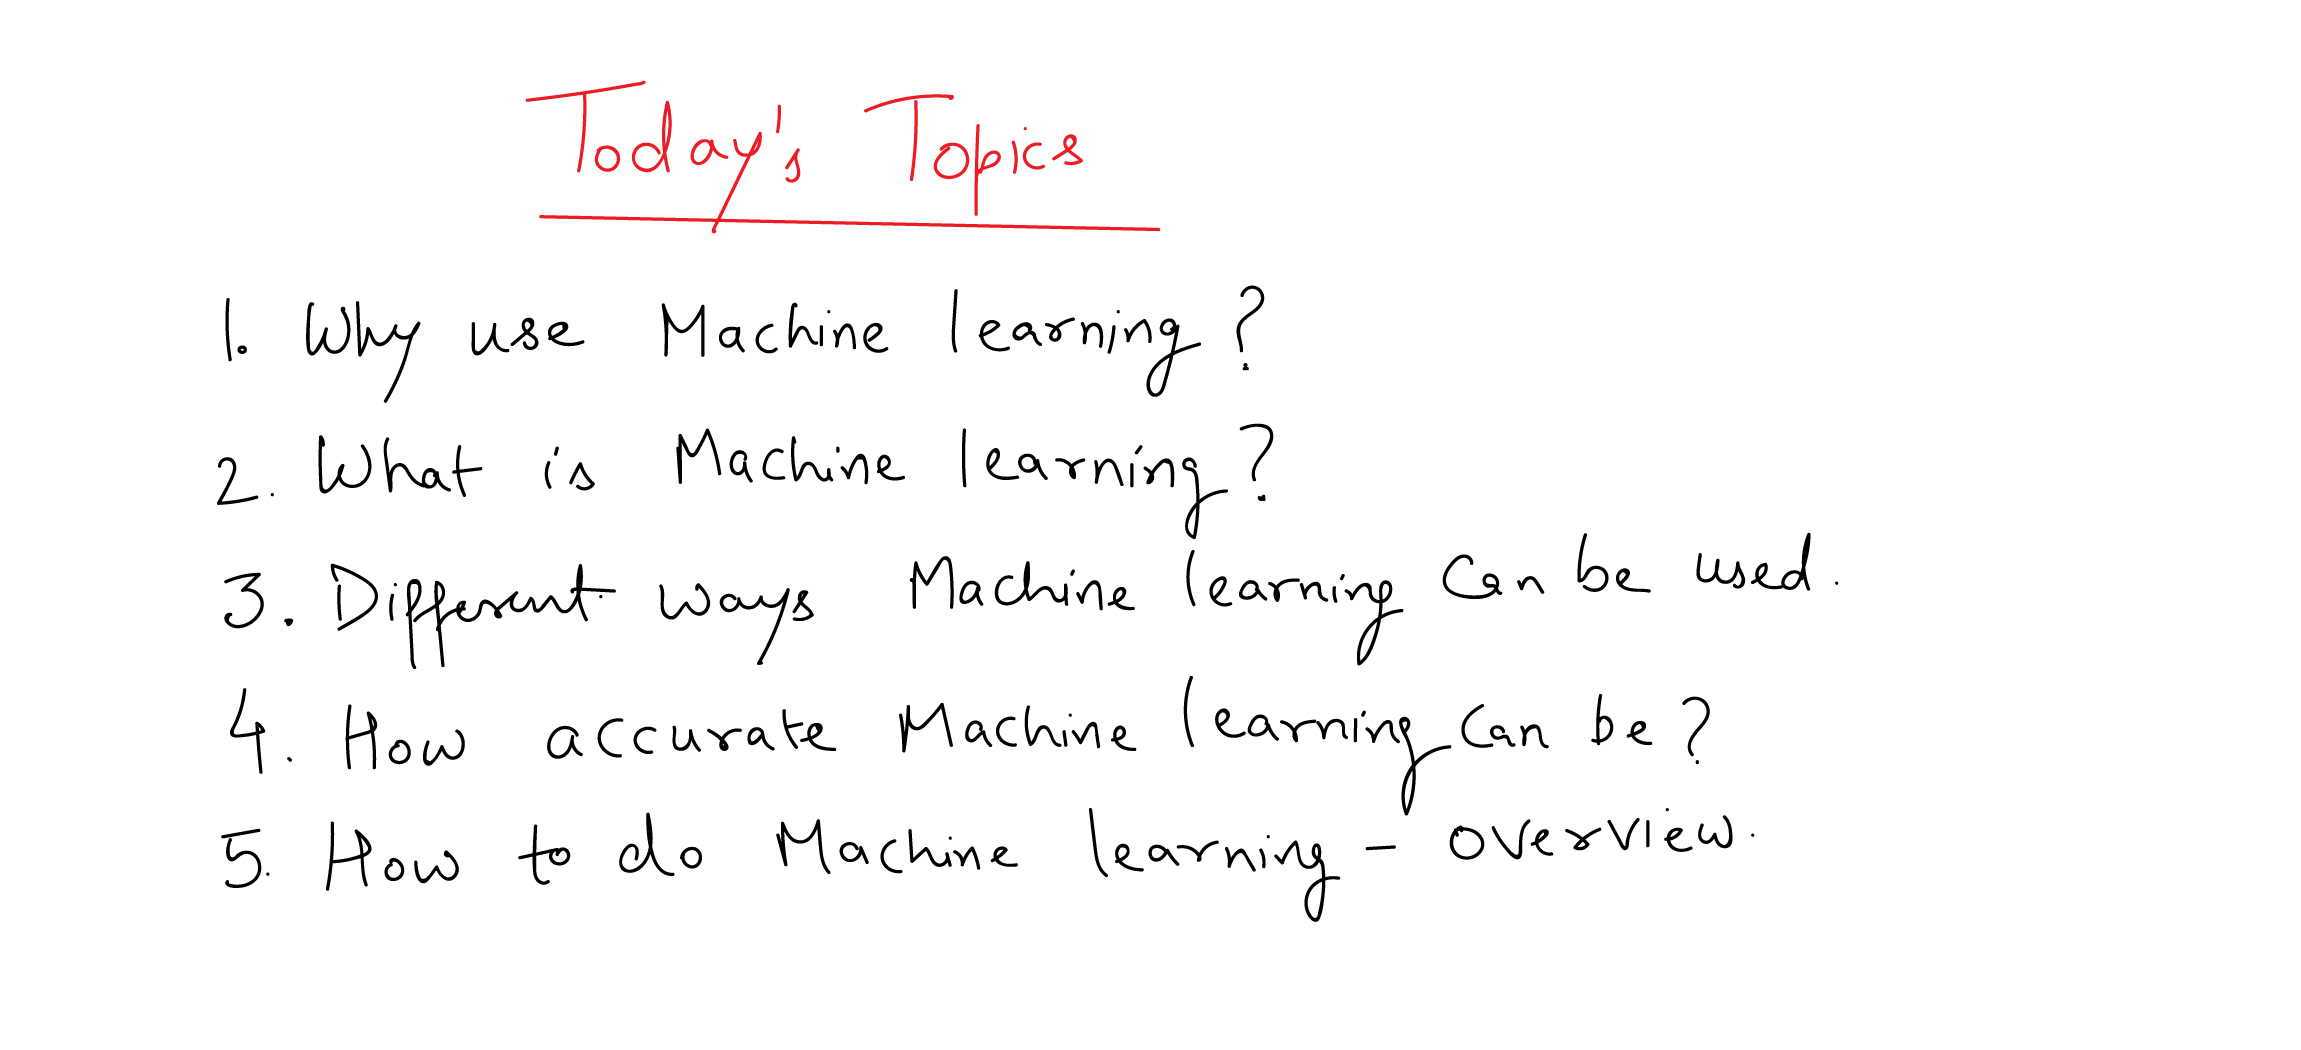 Today's Topics
1. Why use Machine learning?
2. What is Machine learning?
3. Different ways Machine learning can be used.
4. How accurate Machine learning can be?
5. How to do Machine learning - overview.